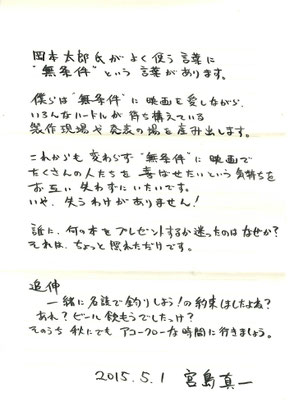 岡本太郎氏がよく使う言葉に
"無条件"という言葉があります。
僕らは"無条件"に映画を愛しながら、
いろんなハードルが待ち構えている
製作現場や発表の場を産み出します。
これからも変わらず"無条件"に映画で
たくさんの人たちを喜ばせたいという気持ちを
お互い失わずにいたいです。
いや、失うわけがありません!
誰に、何の本をプレゼントするか迷ったのはなぜか?
それは、ちょっと照れただけです。
追伸
一緒に名護で釣りしよう!の約束しましたよね?
あれ?ビール飲もうでしたっけ?
そのうち秋にでもアコークローな時間に行きましょう。
2015.5.1 宮島真一